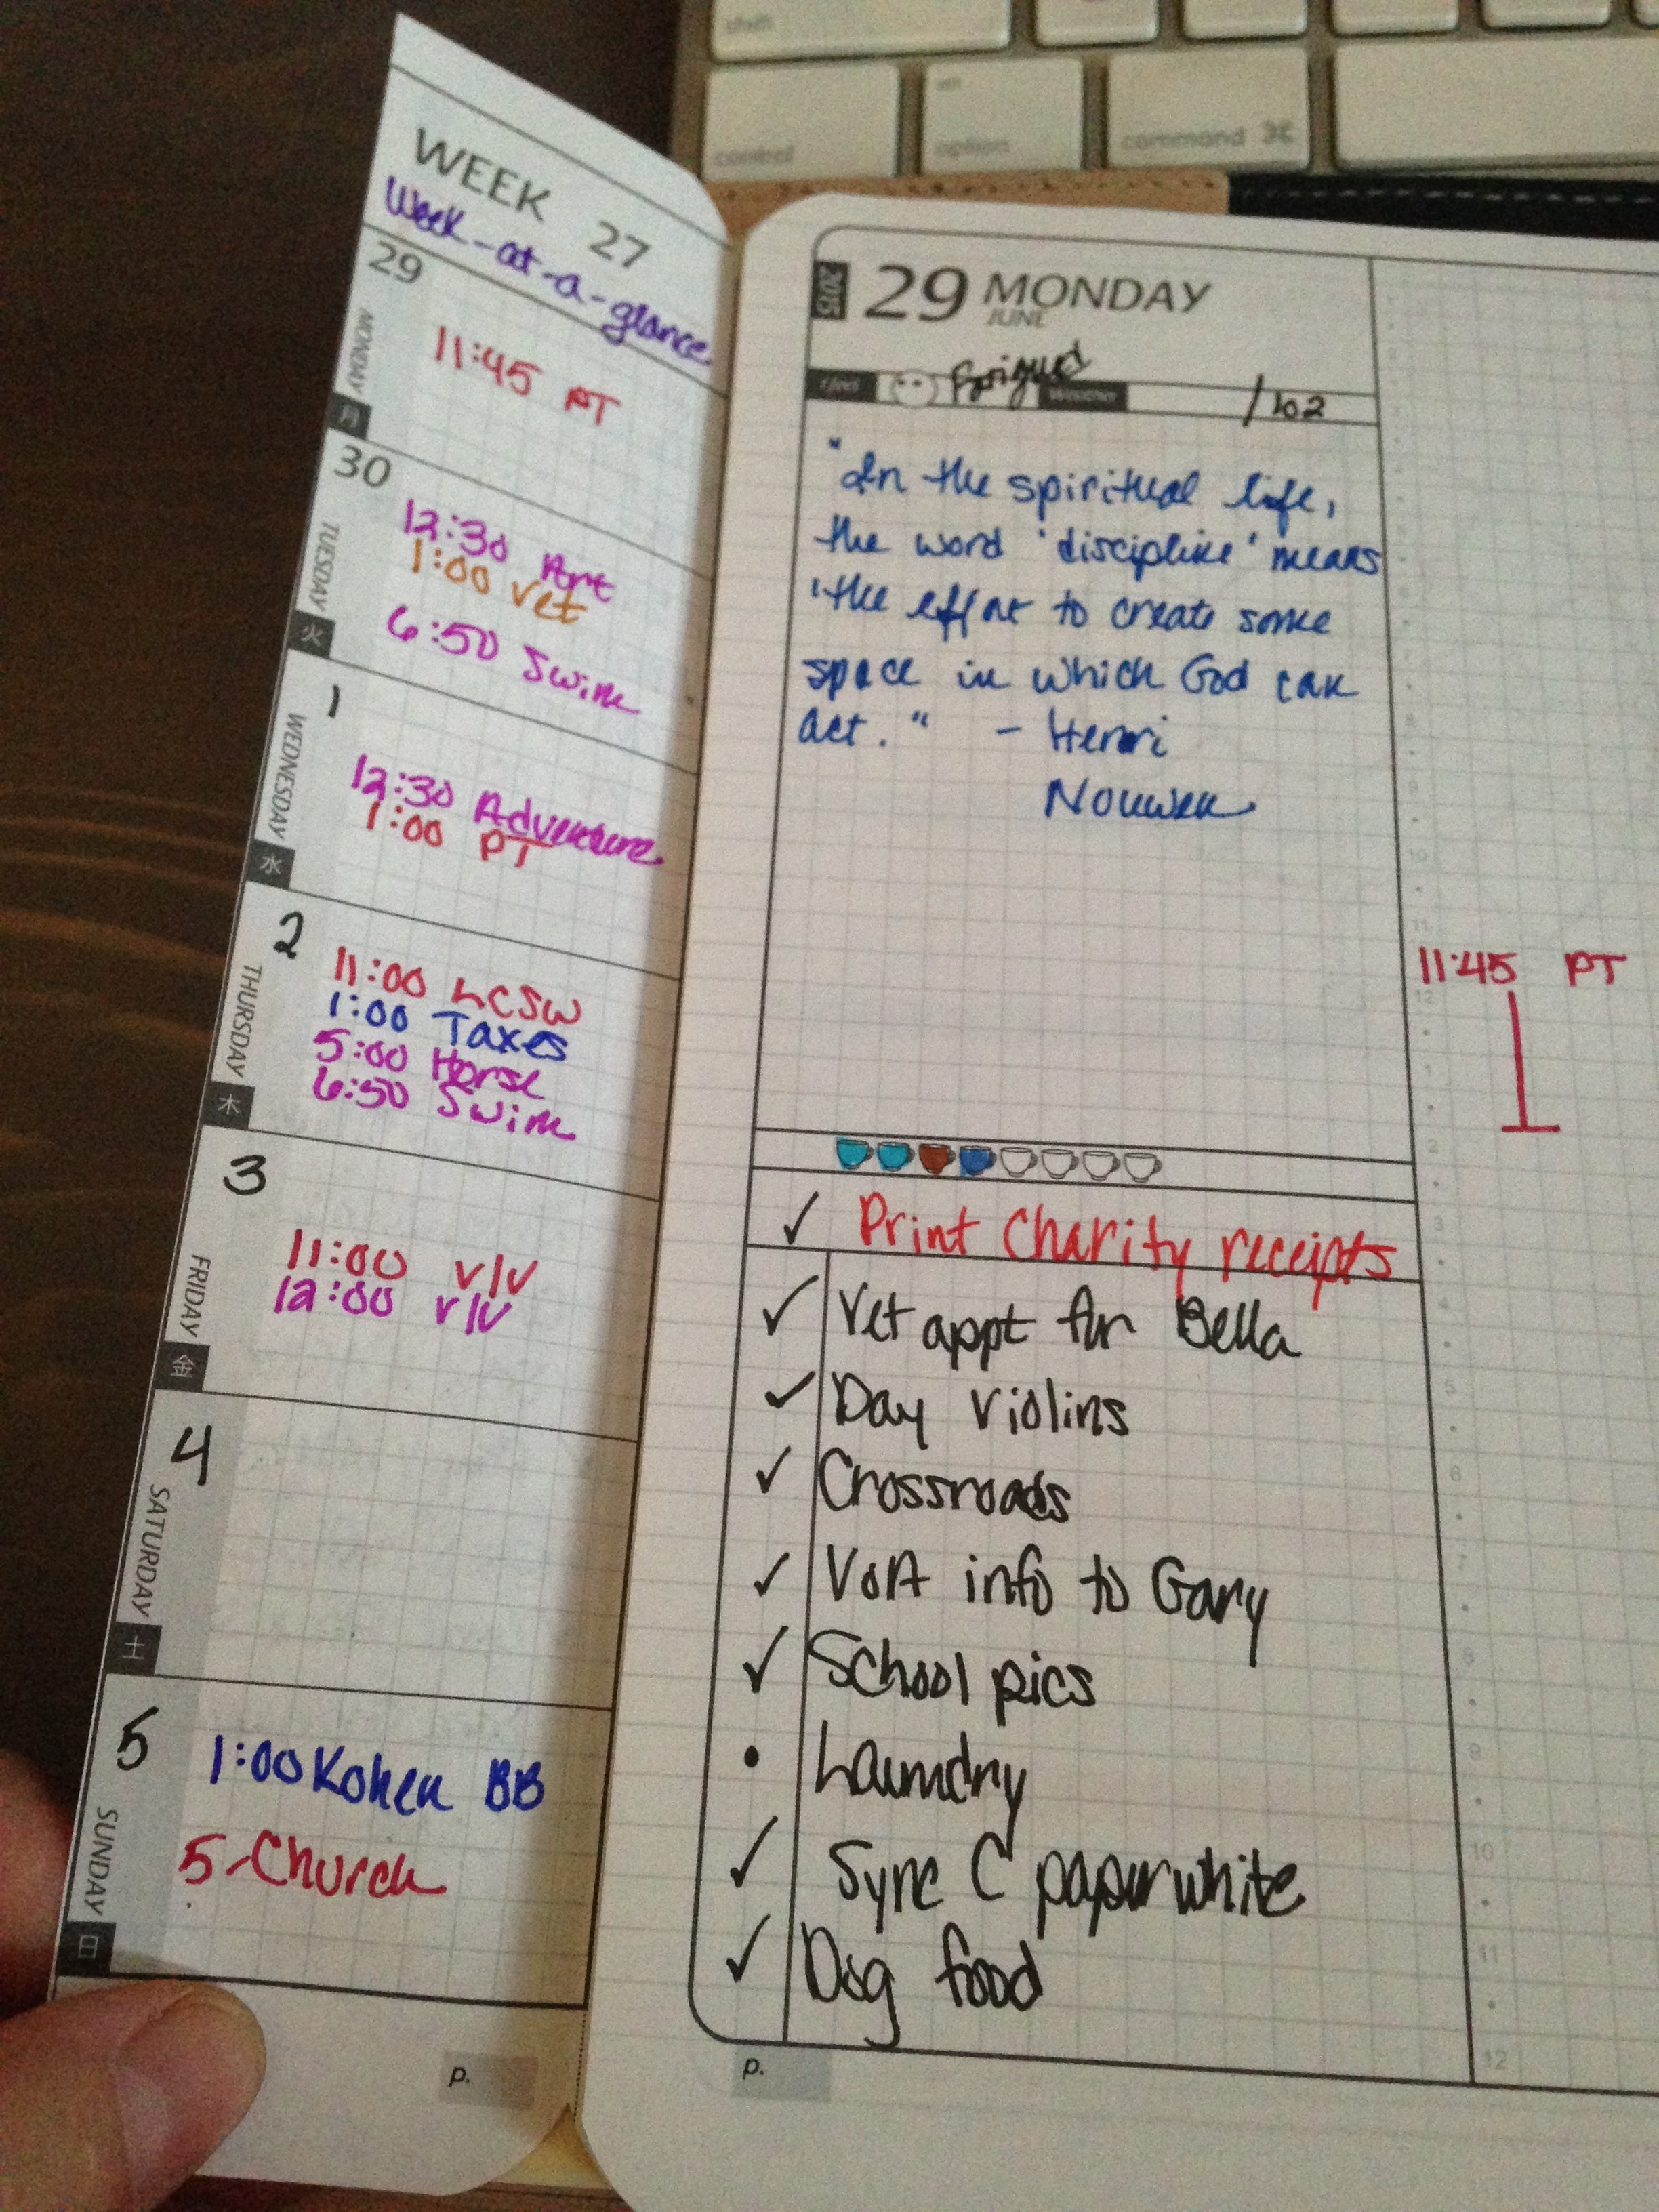 shift
control
alt
option
command ⌘
WEEK 27
Week-at-a-glance
29
MONDAY
月
11:45 PT
30
TUESDAY
火
12:30 Art
1:00 Vet
6:50 Swim
1
WEDNESDAY
水
12:30 Adventure
1:00 PT
2
THURSDAY
木
11:00 LCSW
1:00 Taxes
5:00 Horse
6:50 Swim
3
FRIDAY
金
11:00 v/v
12:00 v/v
4
SATURDAY
土
5
SUNDAY
日
1:00 Kohen BB
5-Church
p.
2015 29 MONDAY
JUNE
Weather /102
"In the spiritual life,
the word 'discipline' means
'the effort to create some
space in which God can
act." - Henri
Nouwen
✓ Print Charity receipts
✓ Vet appt for Bella
✓ Day Violins
✓ Crossroads
✓ VOA info to Gary
✓ School pics
• Laundry
✓ Sync C paperwhite
✓ Dog food
p.
8
9
10
11
11:45 PT
12
1
2
3
4
5
6
7
8
9
10
11
12